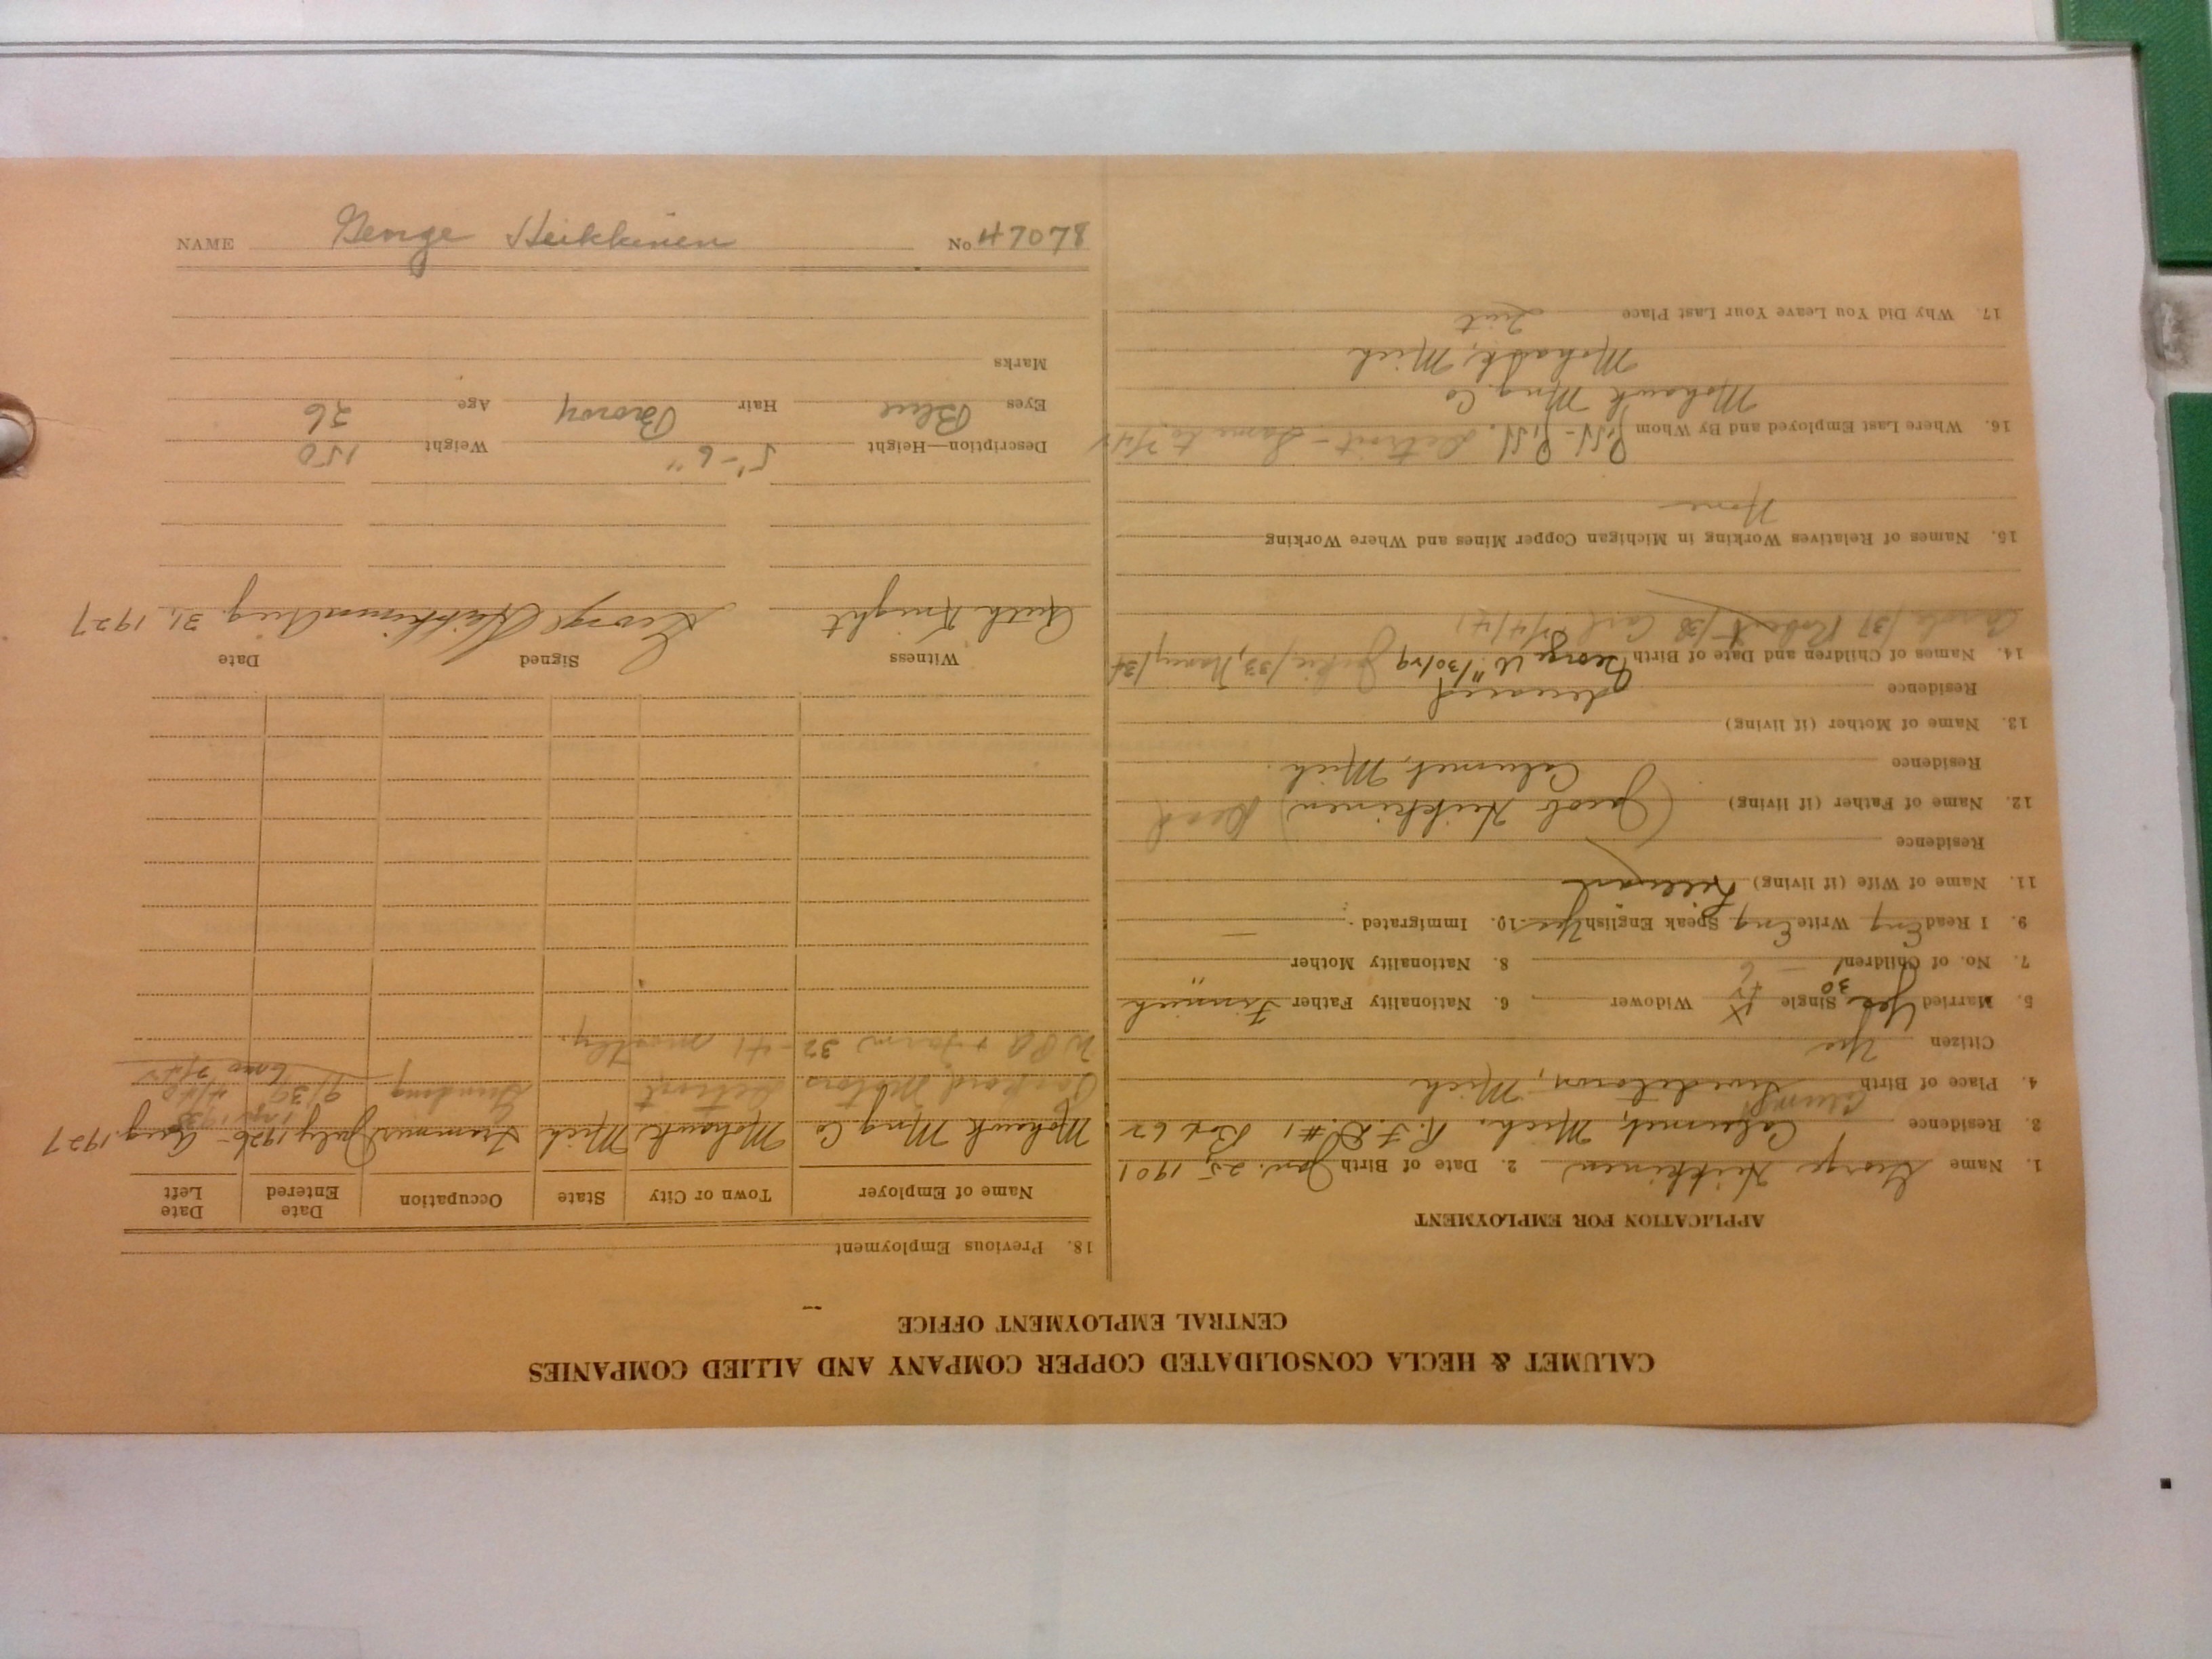 CALUMET & HECLA CONSOLIDATED COPPER COMPANY AND ALLIED COMPANIES
CENTRAL EMPLOYMENT OFFICE
APPLICATION FOR EMPLOYMENT
1. Name George Heikkinen 2. Date of Birth Jan. 25, 1901
3. Residence Calumet, Mich. R.F.D. #1 Box 62
Calumet
4. Place of Birth Swedetown, Mich
Citizen Yes
5. Married Yes Single X Widower 6. Nationality Father Finnish
30
7. No. of Children 1 - 6 8. Nationality Mother "
9. I Read Eng Write Eng Speak English Yes 10. Immigrated —
11. Name of Wife (if living)
Residence
12. Name of Father (if living) (Jacob Heikkinen) Dead
Residence Calumet, Mich.
13. Name of Mother (if living)
Residence
14. Names of Children and Date of Birth George W. 11/30/29 /33, Nancy/34
Carola /37 Robert /38 Carl 7/4/41
15. Names of Relatives Working in Michigan Copper Mines and Where Working
None
16. Where Last Employed and By Whom Detroit - Same to
Mohawk Mng. Co
Mohawk, Mich
17. Why Did You Leave Your Last Place Quit
18. Previous Employment
Name of Employer Town or City State Occupation Date Entered Date Left
Mohawk Mng. Co Mohawk Mich Trammer July 1926 - Aug. 1927
Packard Motors Detroit 9/39
WPA + farm 32-41 mostly.
Witness Signed Date
Ruth Knight George Heikkinen Aug. 31, 1927
Description—Height 5'-6" Weight 150
Eyes Blue Hair Brown Age 26
Marks
NAME George Heikkinen No 47078